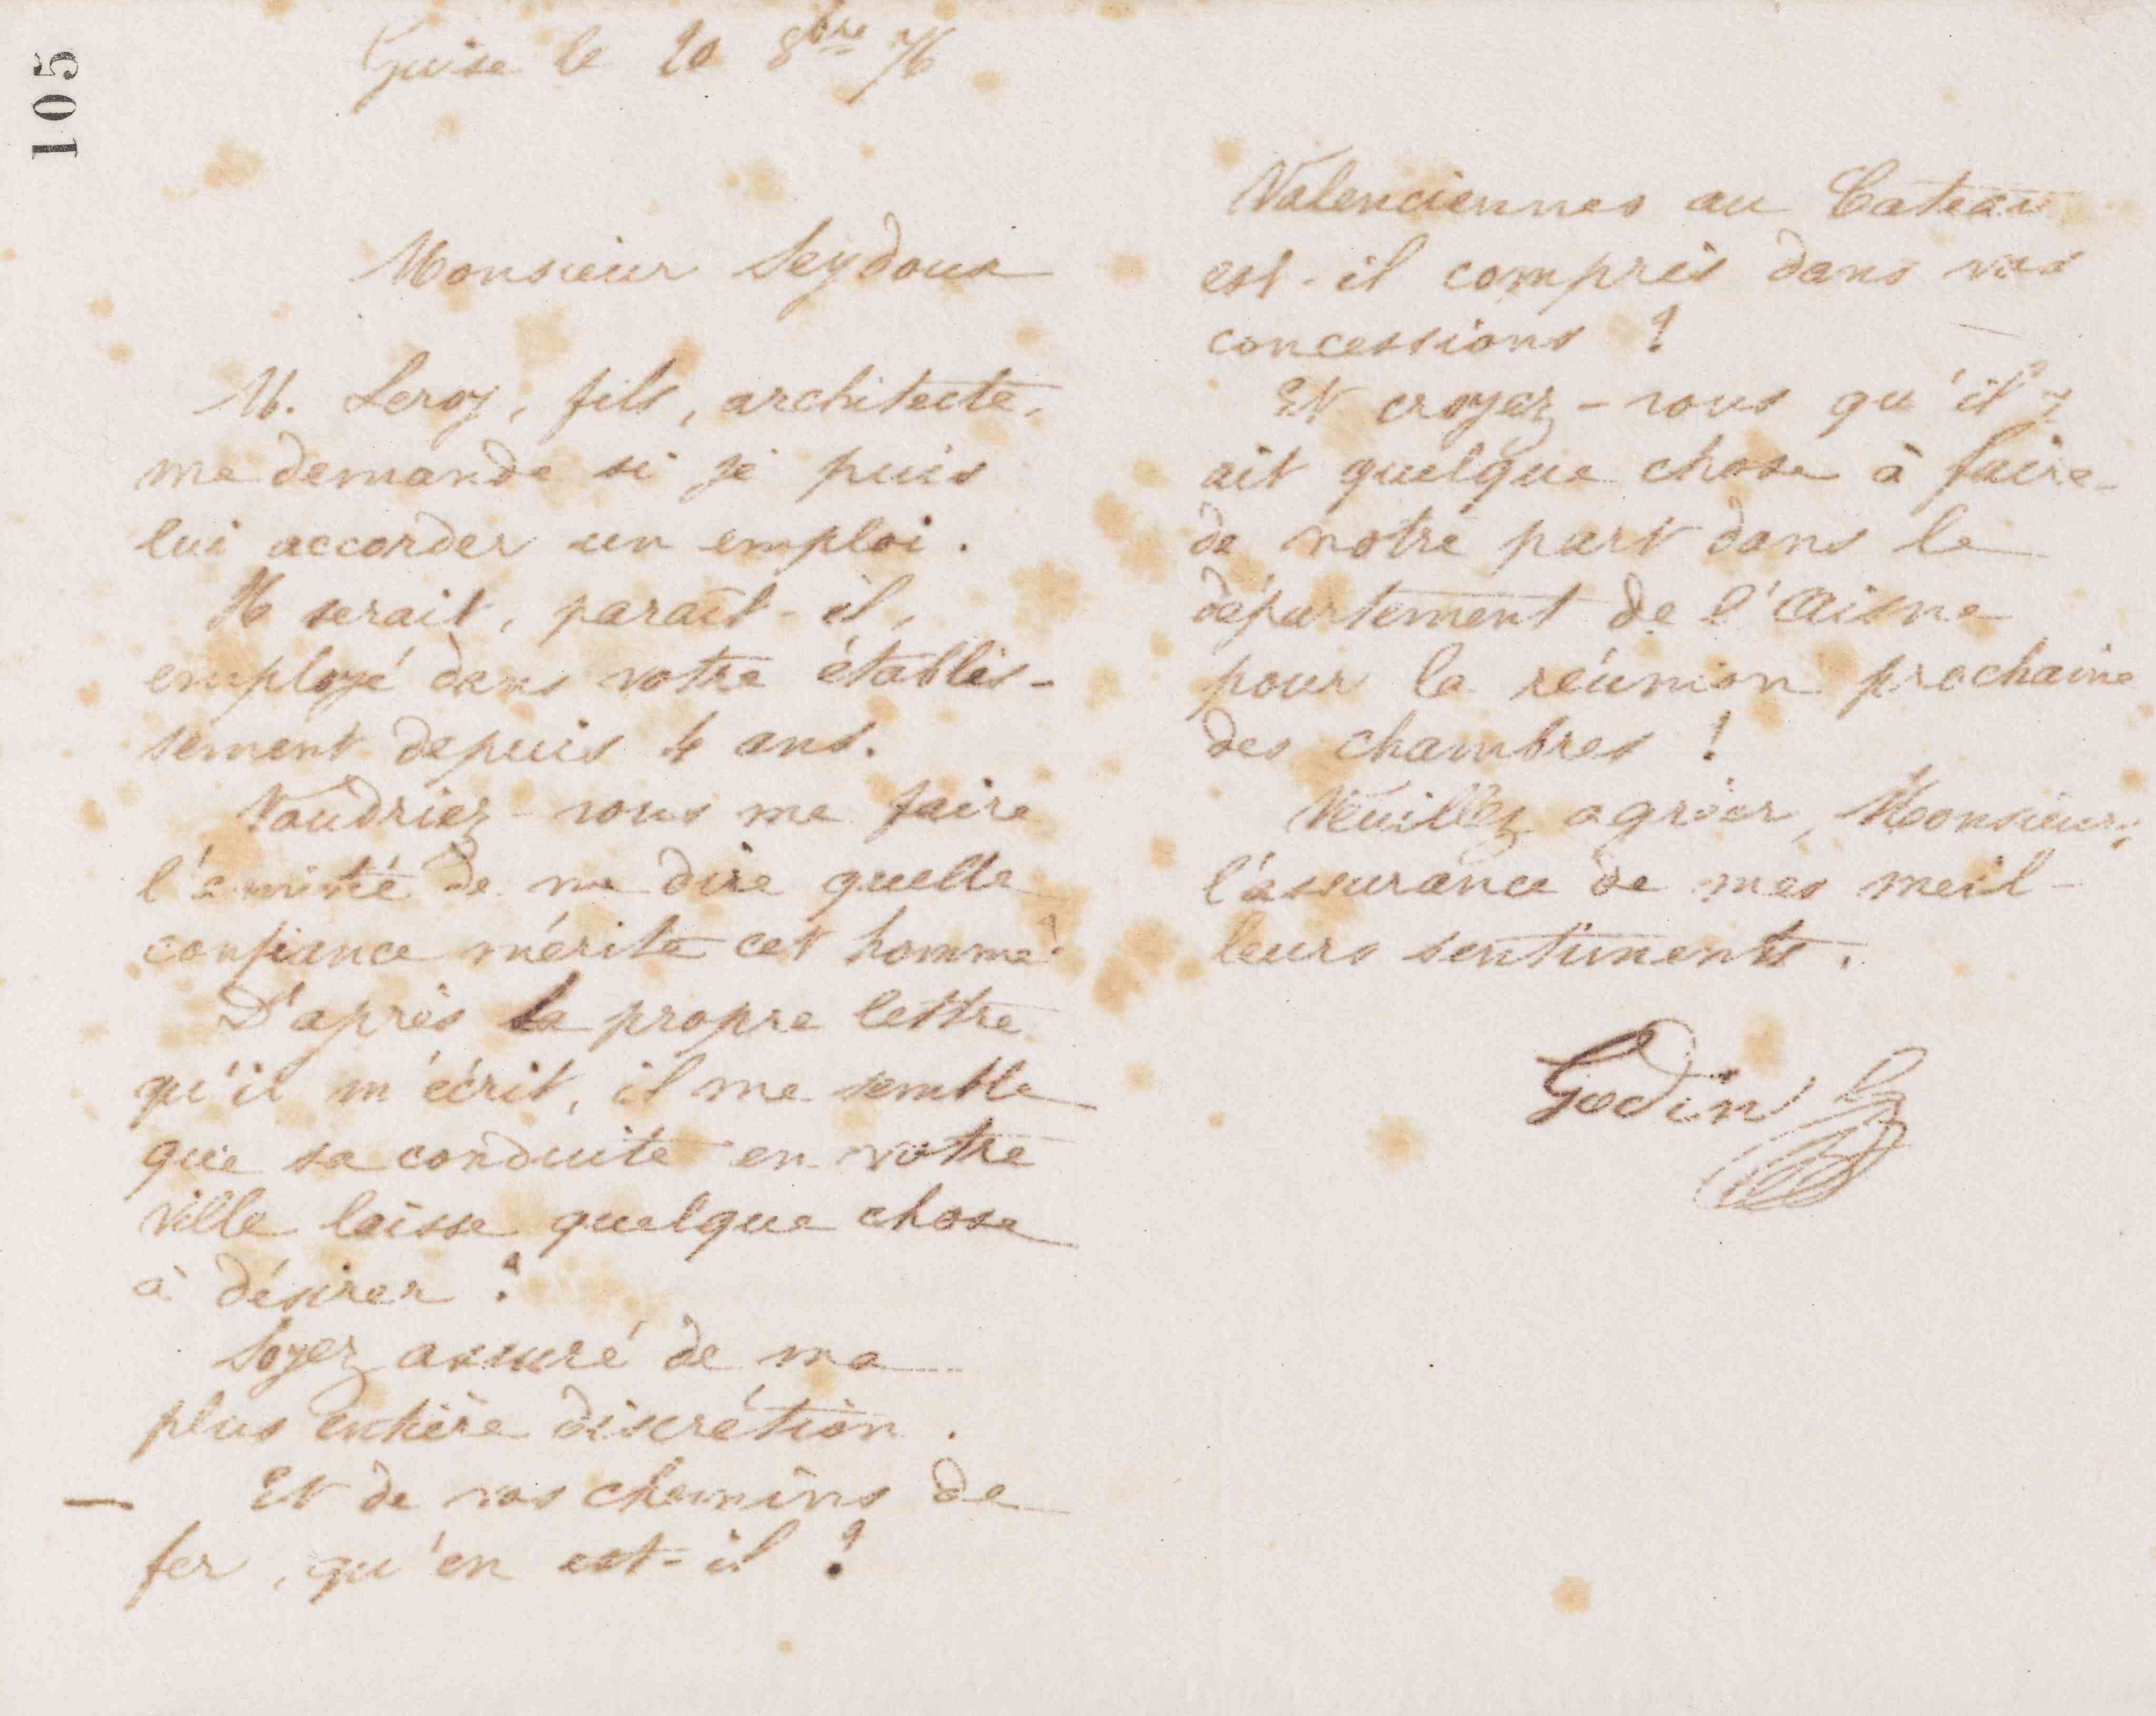 105
Guise le 20 8bre 76
Monsieur Seydoux
M. Leroy, fils, architecte,
me demande si je puis
lui accorder un emploi.
Il serait, paraît-il,
employé dans votre établis-
sement depuis 4 ans.
Voudriez-vous me faire
l'amitié de me dire quelle
confiance mérite cet homme ?
D'après la propre lettre
qu'il m'écrit, il me semble
que sa conduite en votre
ville laisse quelque chose
à désirer ?
Soyez assuré de ma
plus entière discrétion.
— Et de vos chemins de
fer, qu'en est-il ?
Valenciennes au Cateau
est-il compris dans vos
concessions ?
Et croyez-vous qu'il y
ait quelque chose à faire
de notre part dans le
département de l'Aisne
pour la réunion prochaine
des chambres ?
Veuillez agréer, Monsieur,
l'assurance de mes meil-
leurs sentiments.
Godin